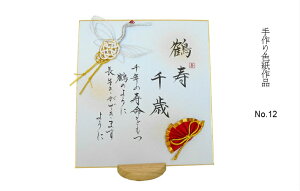 手作り色紙作品
No.12
鶴寿
千歳
千年の寿命をもつ
鶴のように
長生きができます
ように